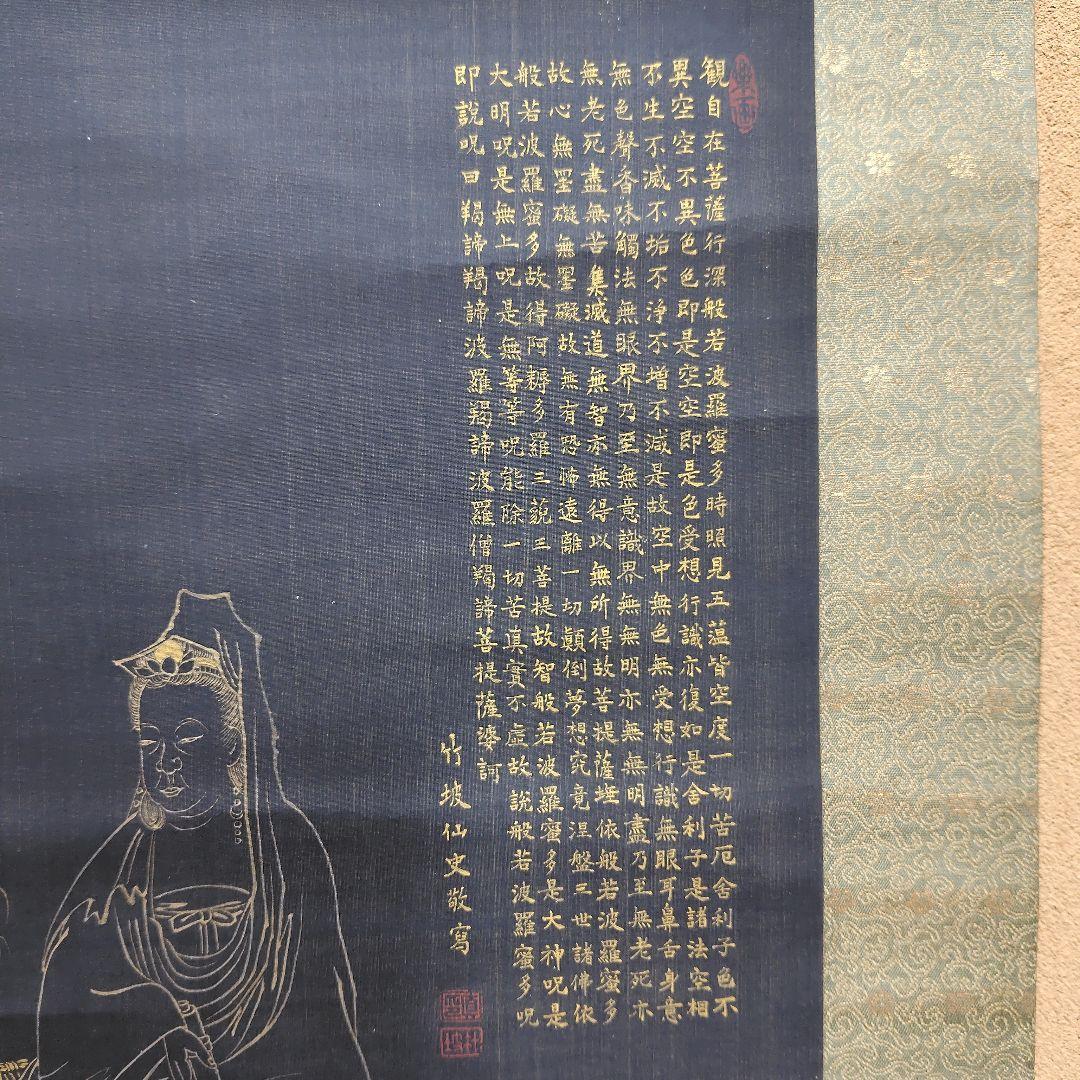 観自在菩薩行深般若波羅蜜多時照見五薀皆空度一切苦厄舍利子色不
異空空不異色色即是空空即是色受想行識亦復如是舍利子是諸法空相
不生不滅不垢不淨不增不減是故空中無色無受想行識無眼耳鼻舌身意
無色聲香味觸法無眼界乃至無意識界無無明亦無無明盡乃至無老死亦
無老死盡無苦集滅道無智亦無得以無所得故菩提薩埵依般若波羅蜜多
故心無罣礙無罣礙故無有恐怖遠離一切顛倒夢想究竟涅盤三世諸佛依
般若波羅蜜多故得阿耨多羅三藐三菩提故智般若波羅蜜多是大神呪是
大明呪是無上呪是無等等呪能除一切苦真實不虛故說般若波羅蜜多呪
即說呪曰羯諦羯諦波羅羯諦波羅僧羯諦菩提薩婆訶
竹坡仙史敬寫